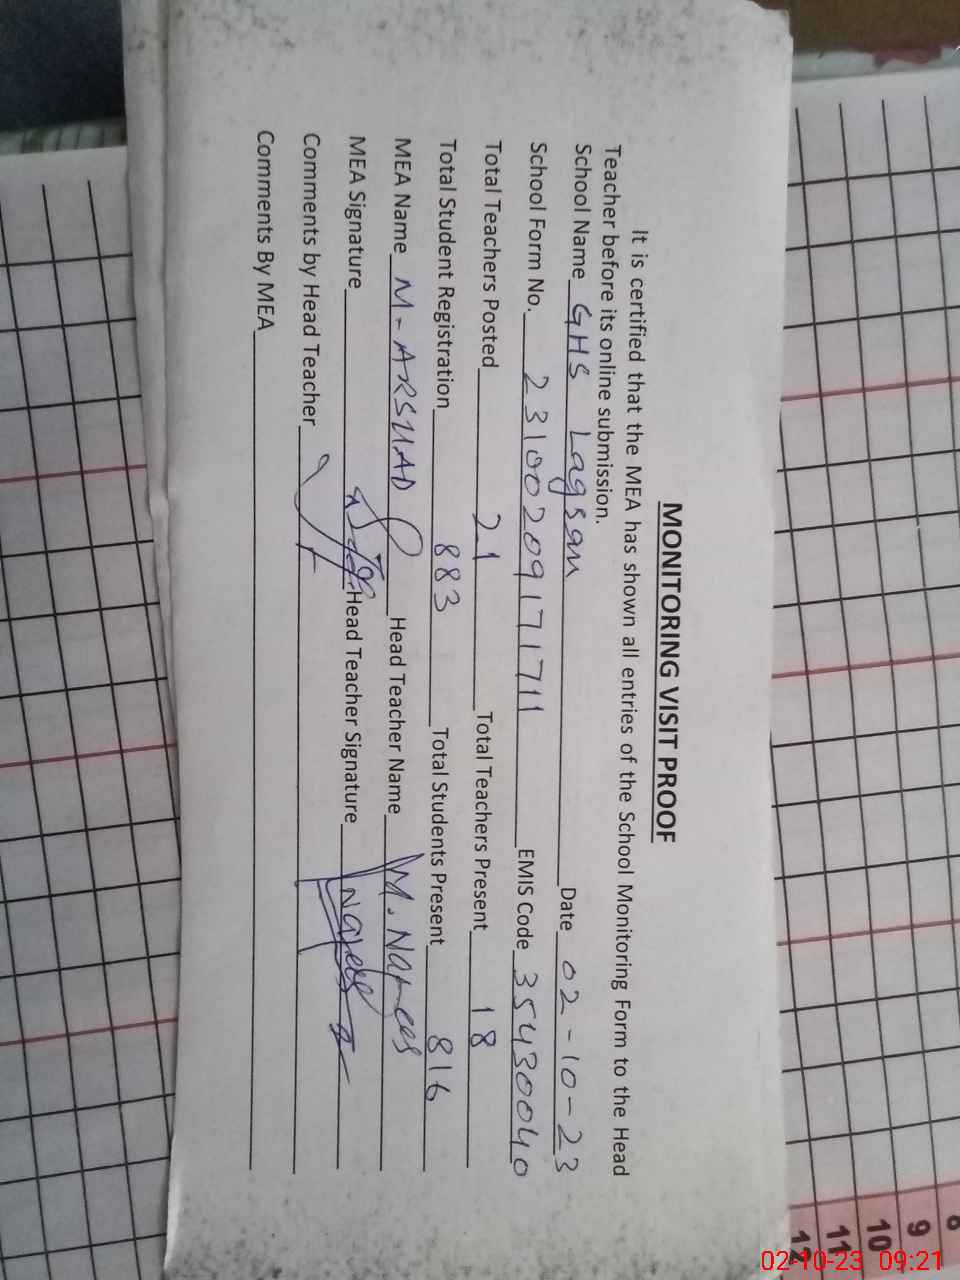 MONITORING VISIT PROOF
It is certified that the MEA has shown all entries of the School Monitoring Form to the Head
Teacher before its online submission.
School Name GHS Lagsan Date 02-10-23
School Form No. 23100209171711 EMIS Code 35430040
Total Teachers Posted 21 Total Teachers Present 18
Total Student Registration 883 Total Students Present 816
MEA Name M-ARSHAD Head Teacher Name M.
MEA Signature Head Teacher Signature
Comments by Head Teacher
Comments By MEA
8
9
10
11
12
02-10-23 09:21